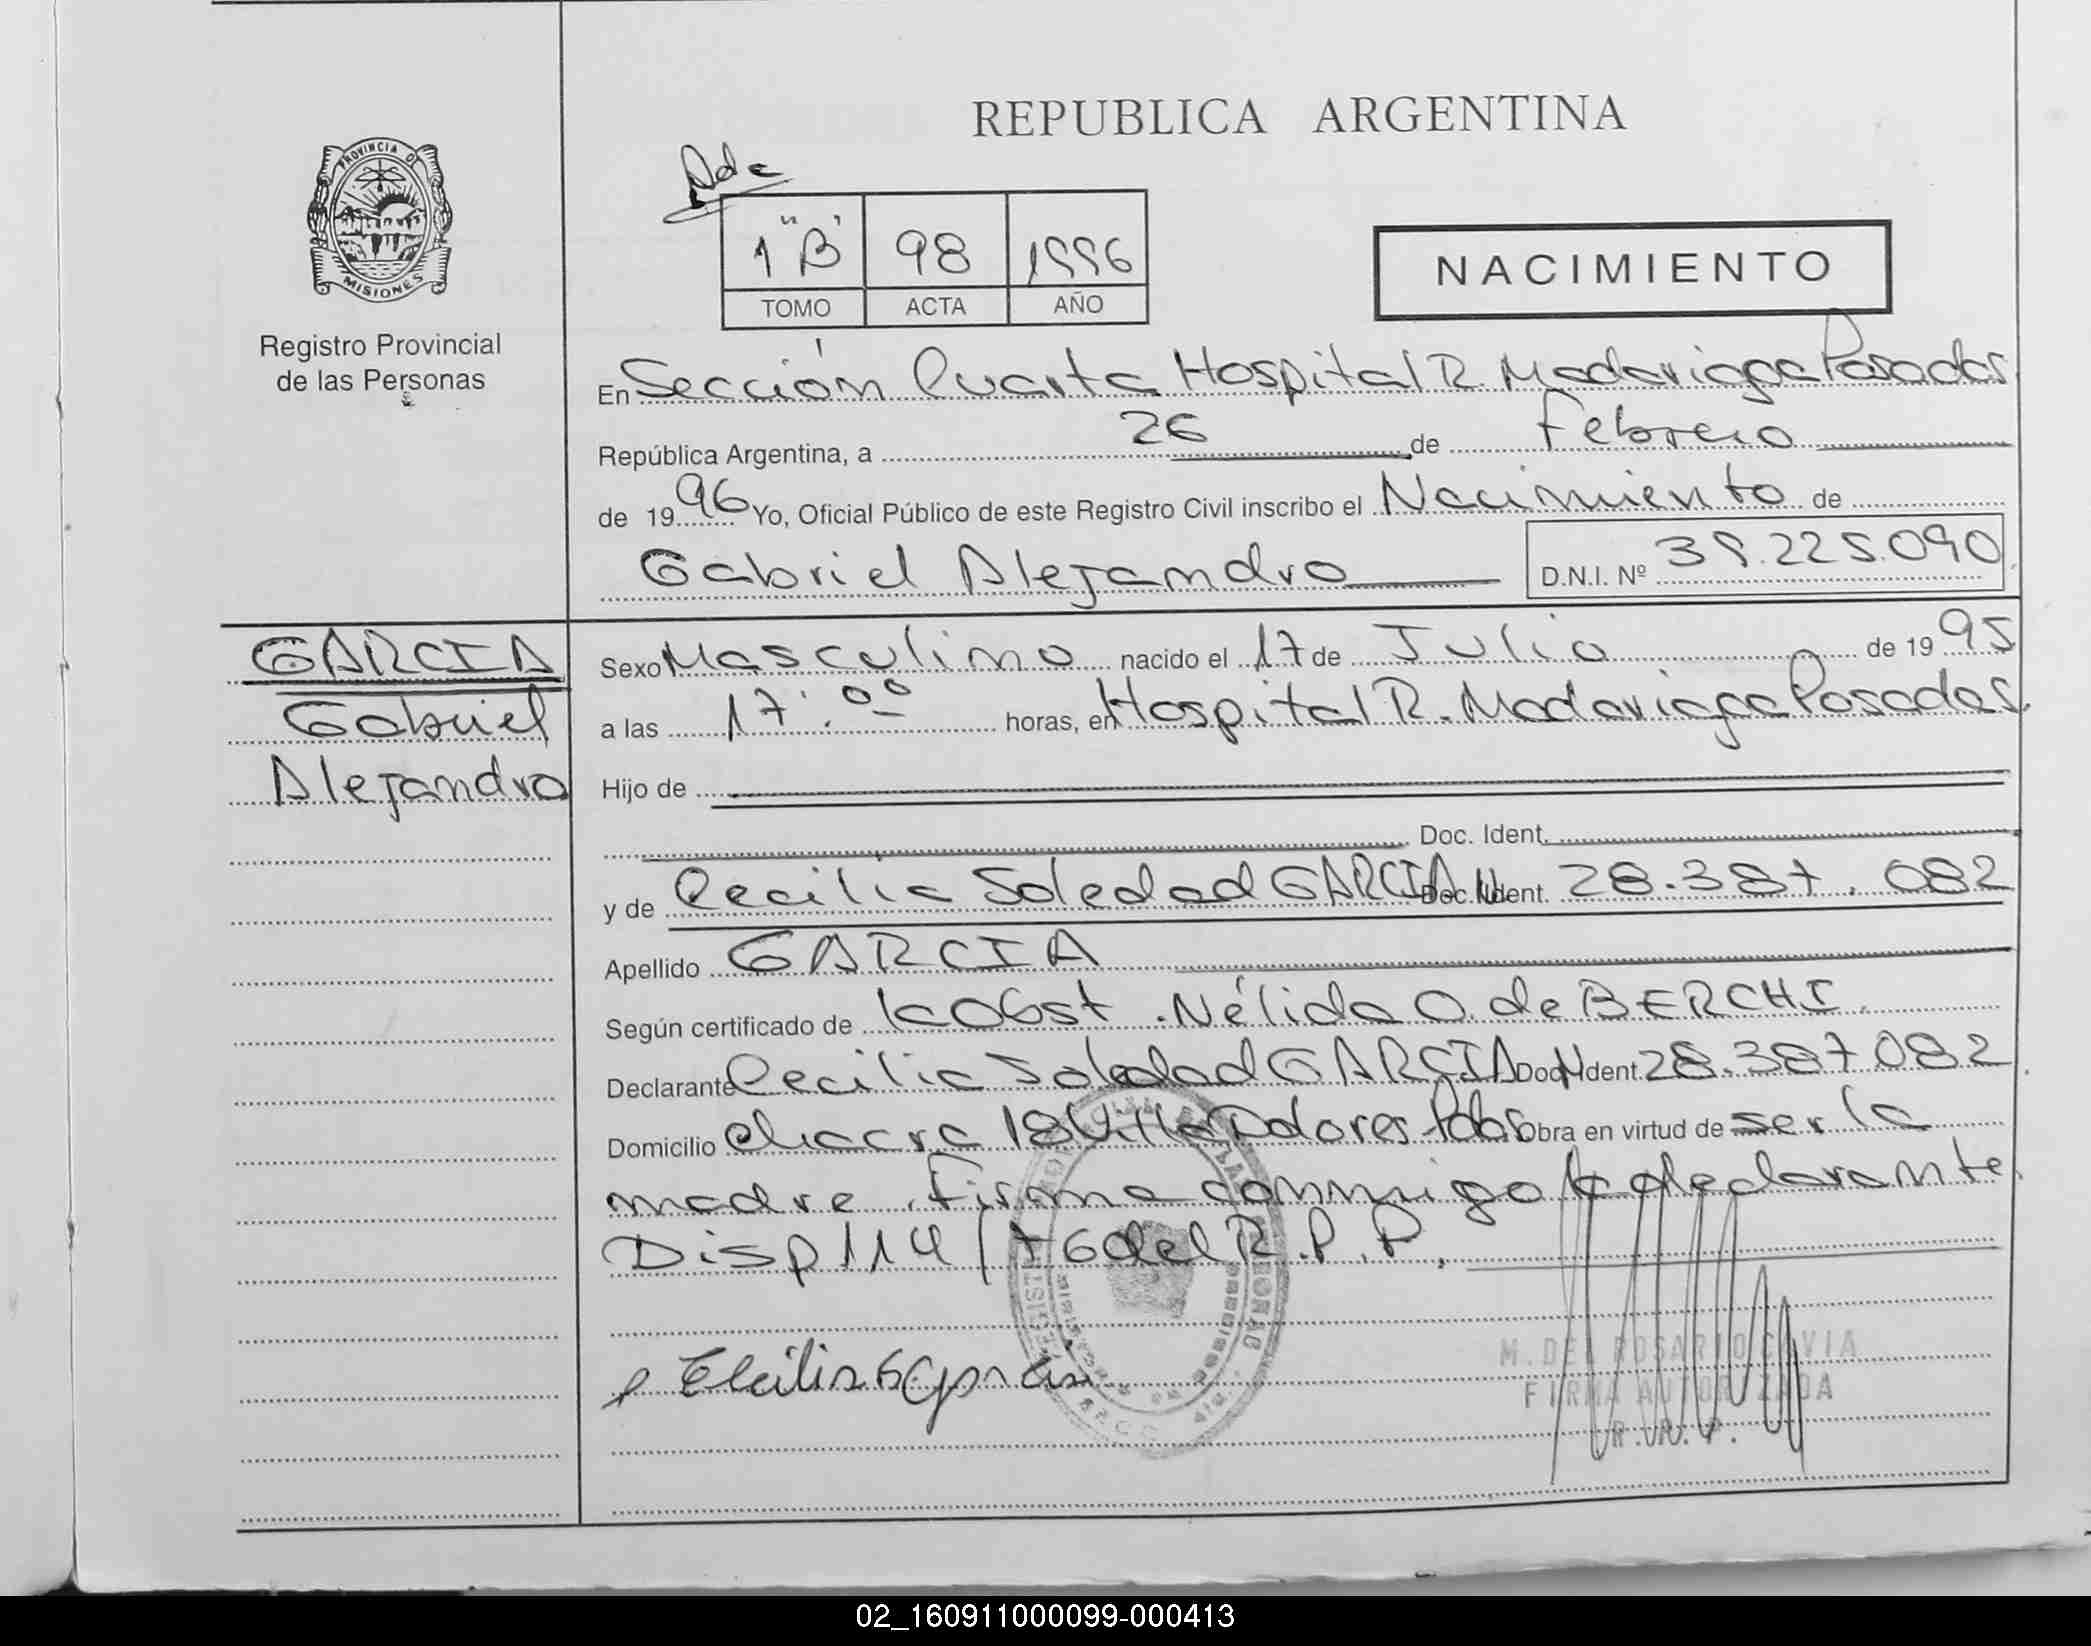 REPUBLICA ARGENTINA
PROVINCIA D
MISIONES
Registro Provincial
de las Personas
Pda
1 "B" 98 1996
TOMO ACTA AÑO
NACIMIENTO
En Sección Cuarta Hospital R. Madariaga Posadas
República Argentina, a 26 de Febrero
de 1996 Yo, Oficial Público de este Registro Civil inscribo el Nacimiento de
Gabriel Alejandro D.N.I. Nº 39.225.090
GARCIA
Gabriel
Alejandro
Sexo Masculino nacido el 17 de Julio de 1995
a las 17:00 horas, en Hospital R. Madariaga Posadas.
Hijo de
Doc. Ident.
y de Cecilia Soledad GARCIA Doc. Ident. 28.387.082
Apellido GARCIA
Según certificado de la Obst. Nélida O. de BERCHI.
Declarante Cecilia Soledad GARCIA Doc. Ident. 28.387.082
Domicilio Chacra 18 Villa Dolores Pdas Obra en virtud de ser la
madre. Firma conmigo la declarante
Disp 114/76 del R.P.P.
M. DEL ROSARIO
FIRMA AUTORIZADA
R. P. P.
02_160911000099-000413